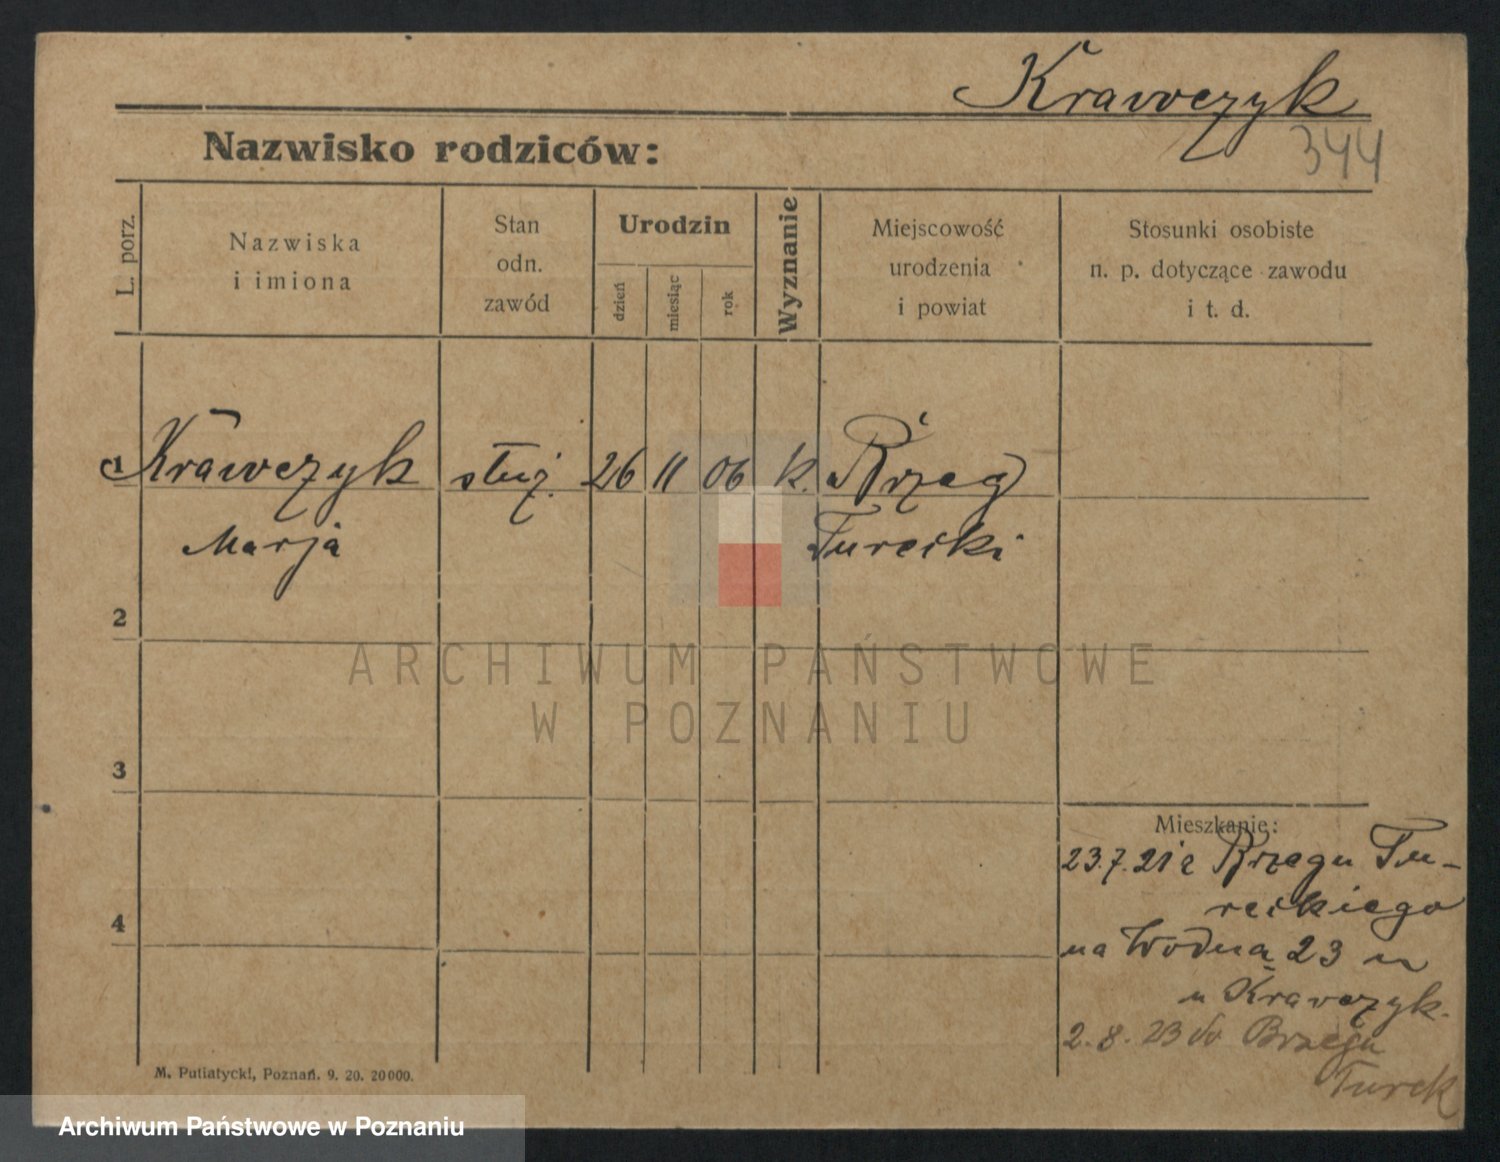 Krawczyk
344
Nazwisko rodziców:
L. porz.
Nazwiska
i imiona
Stan
odn.
zawód
Urodzin
dzień
miesiąc
rok
Wyznanie
Miejscowość
urodzenia
i powiat
Stosunki osobiste
n. p. dotyczące zawodu
i t. d.
1 Krawczyk służ. 26 11 06 k. Brzeg
Marja Turecki
2
ARCHIWUM PAŃSTWOWE
W POZNANIU
3
Mieszkanie:
23.7.21 z Brzegu Tu-
reckiego
4
na Wodną 23
u Krawczyk.
2.8.23 do Brzegu
Turek
M. Putiatycki, Poznań. 9. 20. 20000.
Archiwum Państwowe w Poznaniu